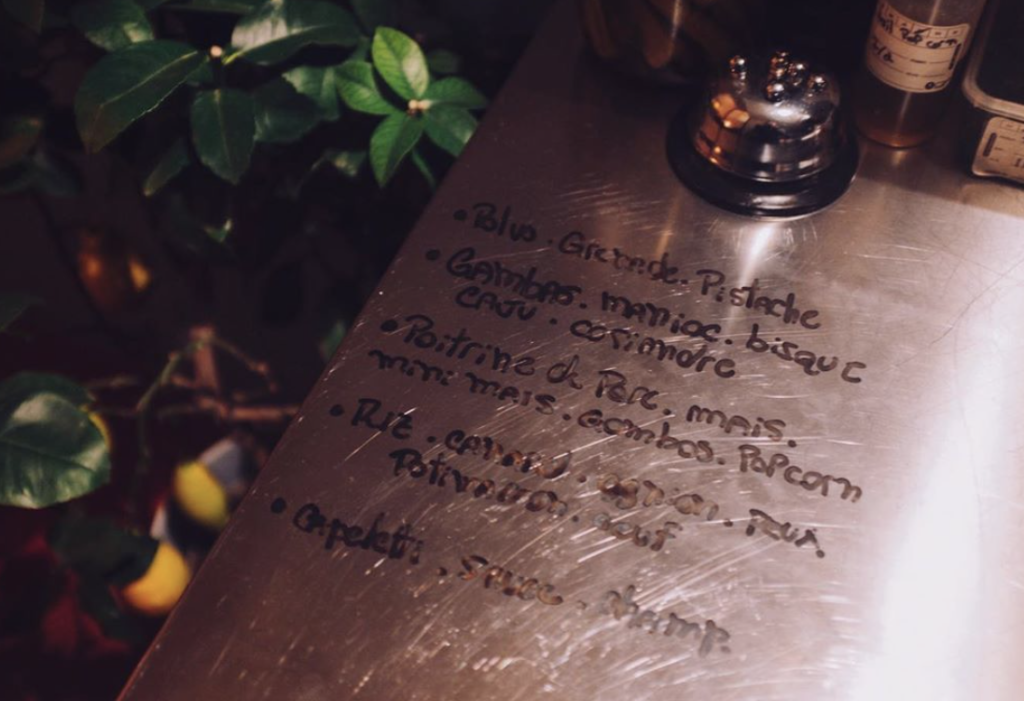 • Pistache
• Gambas. manioc. bisque
CAJU. coriandre
• Poitrine de Porc. mais.
mini mais. Gombos. Popcorn
• RIZ. canard. oignon.
Potimarron. oeuf
• Capeletti. sauce. champ.